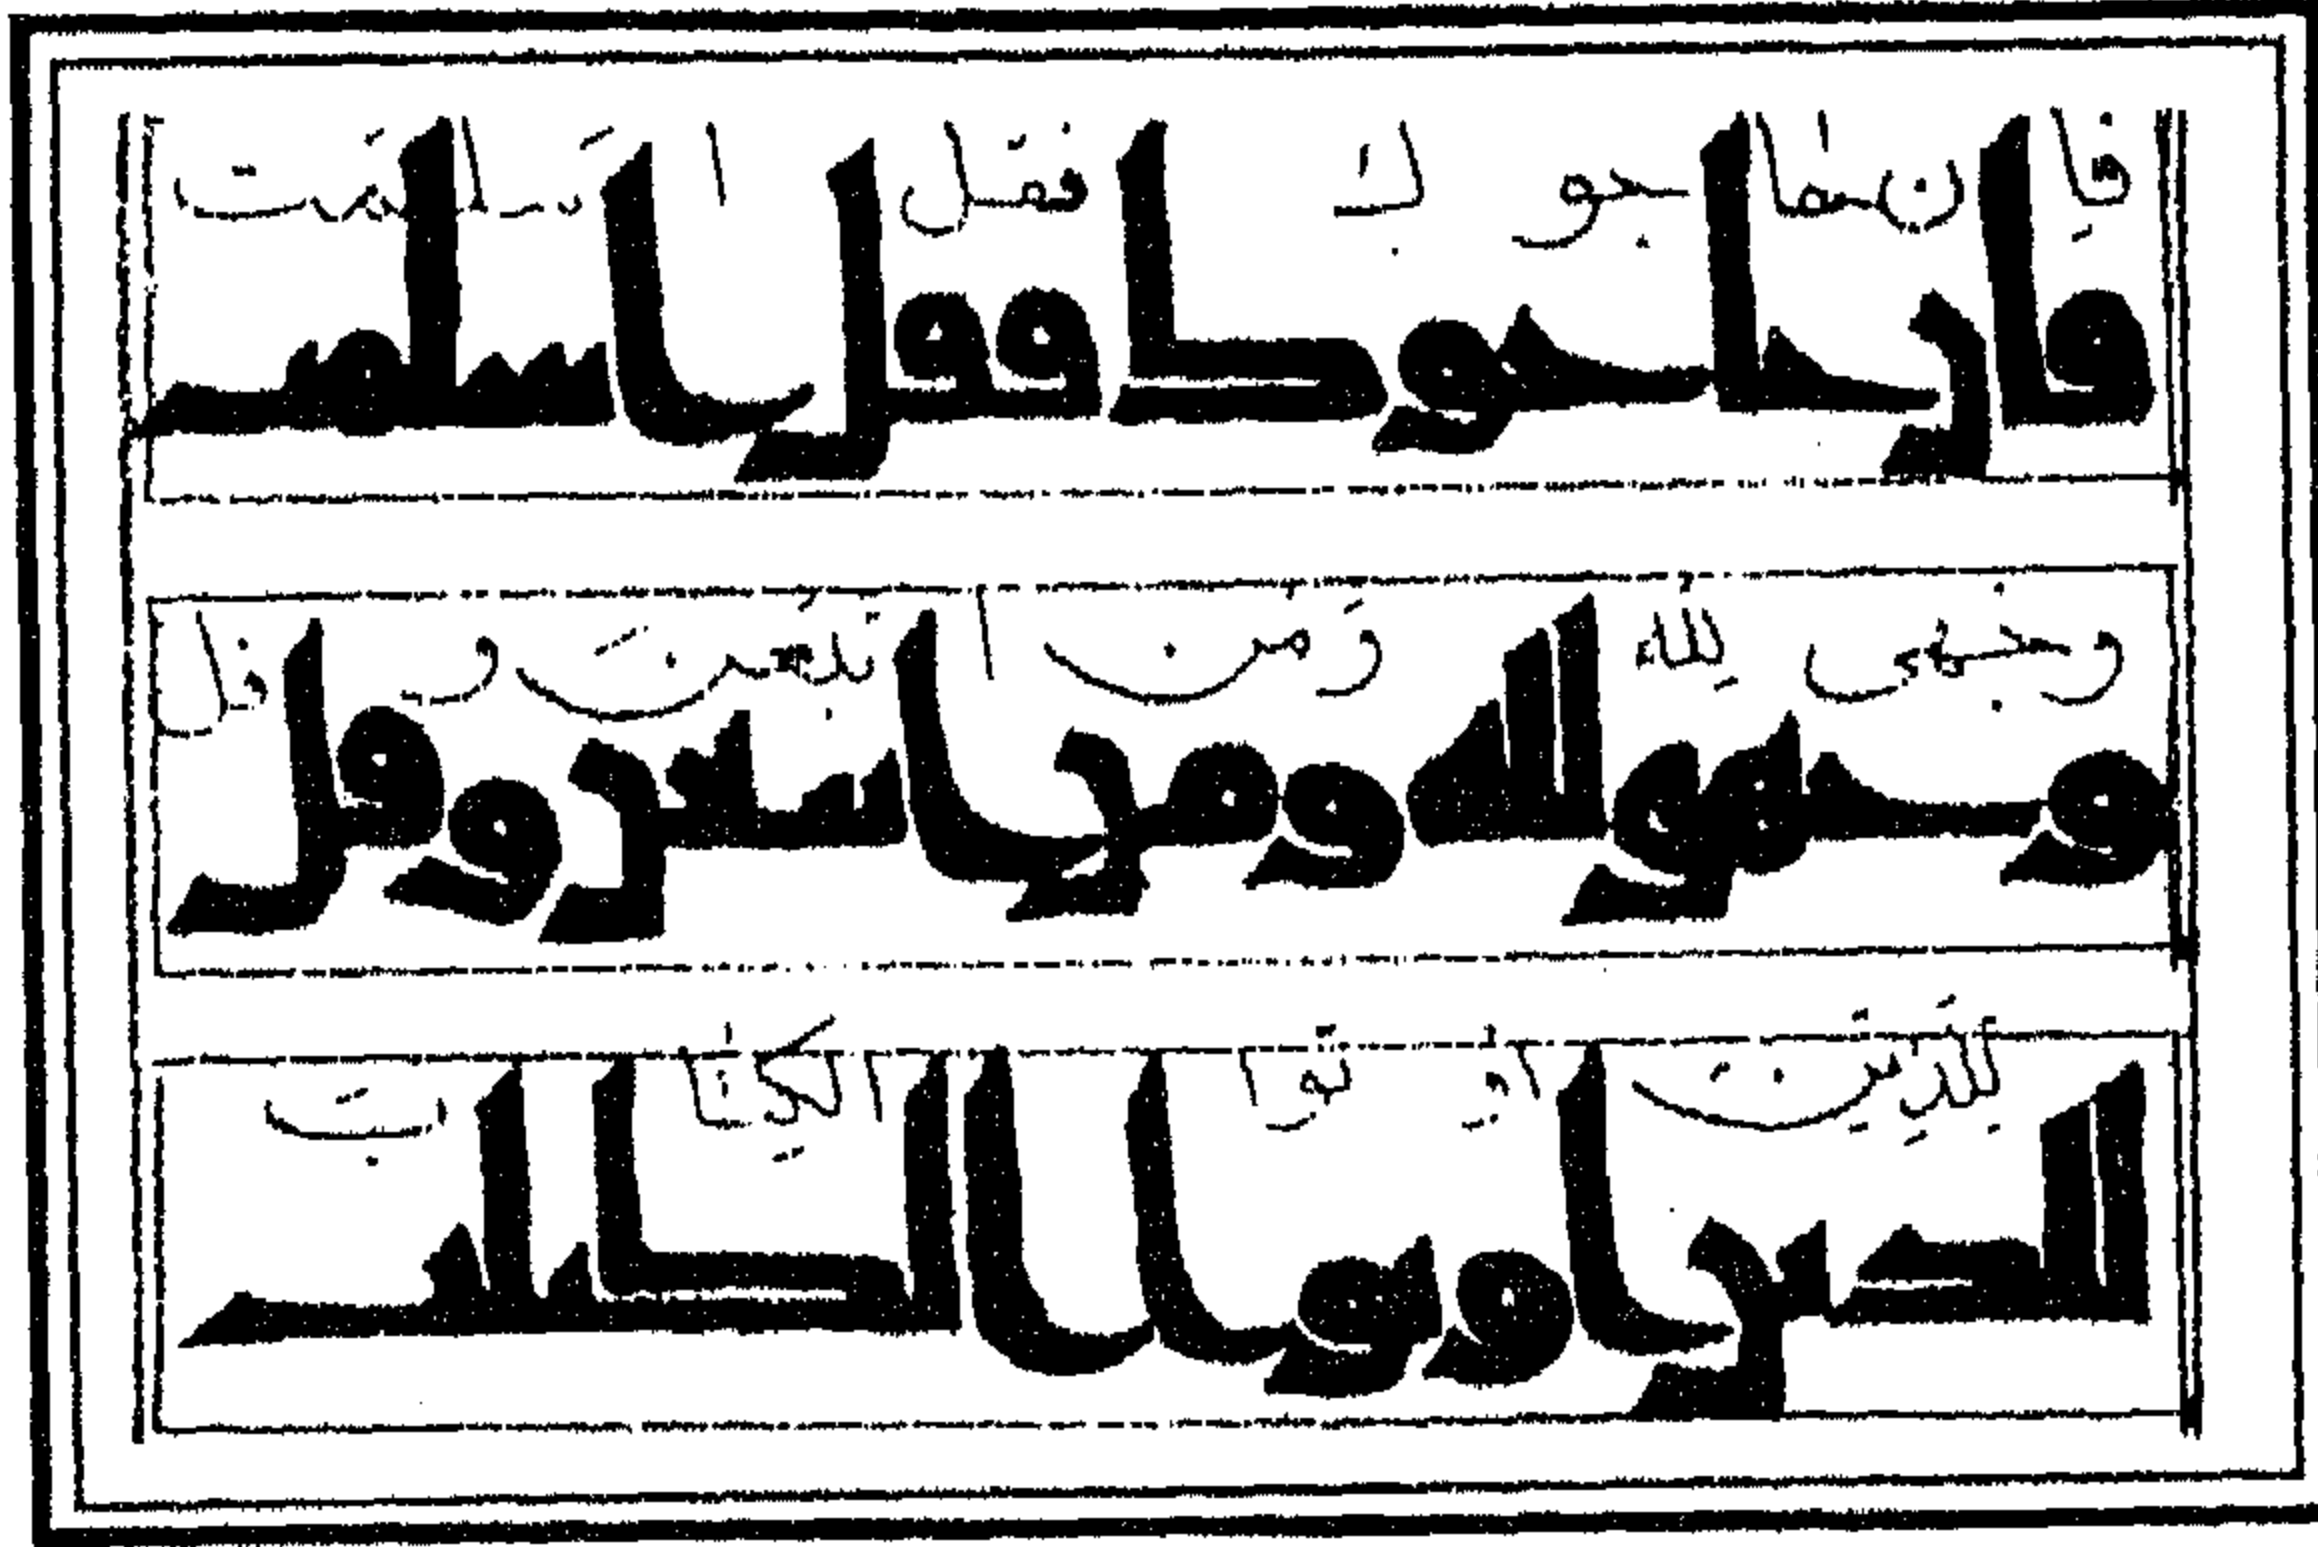 فَاِن حاجوك فقل اسلمت
فان حاجوك فقل اسلمت
وجهى لله ومن اتبعن وقل
وجهى لله ومن اتبعن وقل
للذين اوتوا الكتاب
للذين اوتوا الكتاب